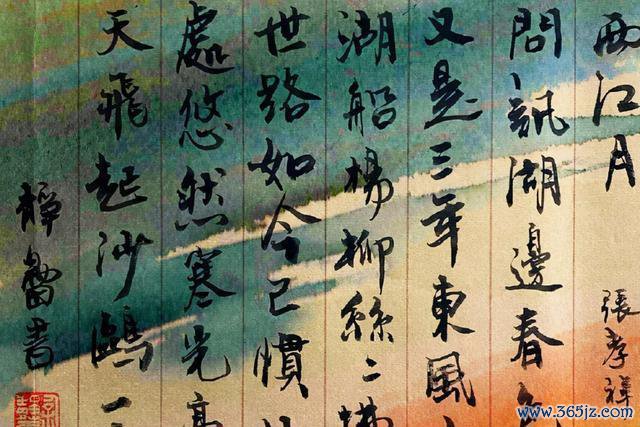 西江月 張孝祥
問訊湖邊春色
又是三年東風
湖船楊柳絲〻拂
世路如今已慣
處悠然寒光亭
天飛起沙鷗一
靜蕾書
www.365jz.com